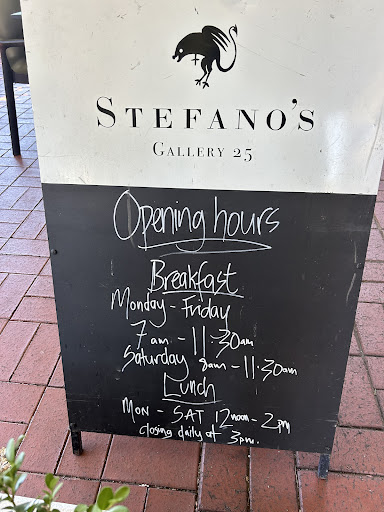 STEFANO'S
GALLERY 25
Opening hours
Breakfast
Monday - Friday
7am - 11:30am
Saturday 8am - 11:30am
Lunch
MON - SAT 12noon - 2pm
closing daily at 3pm.